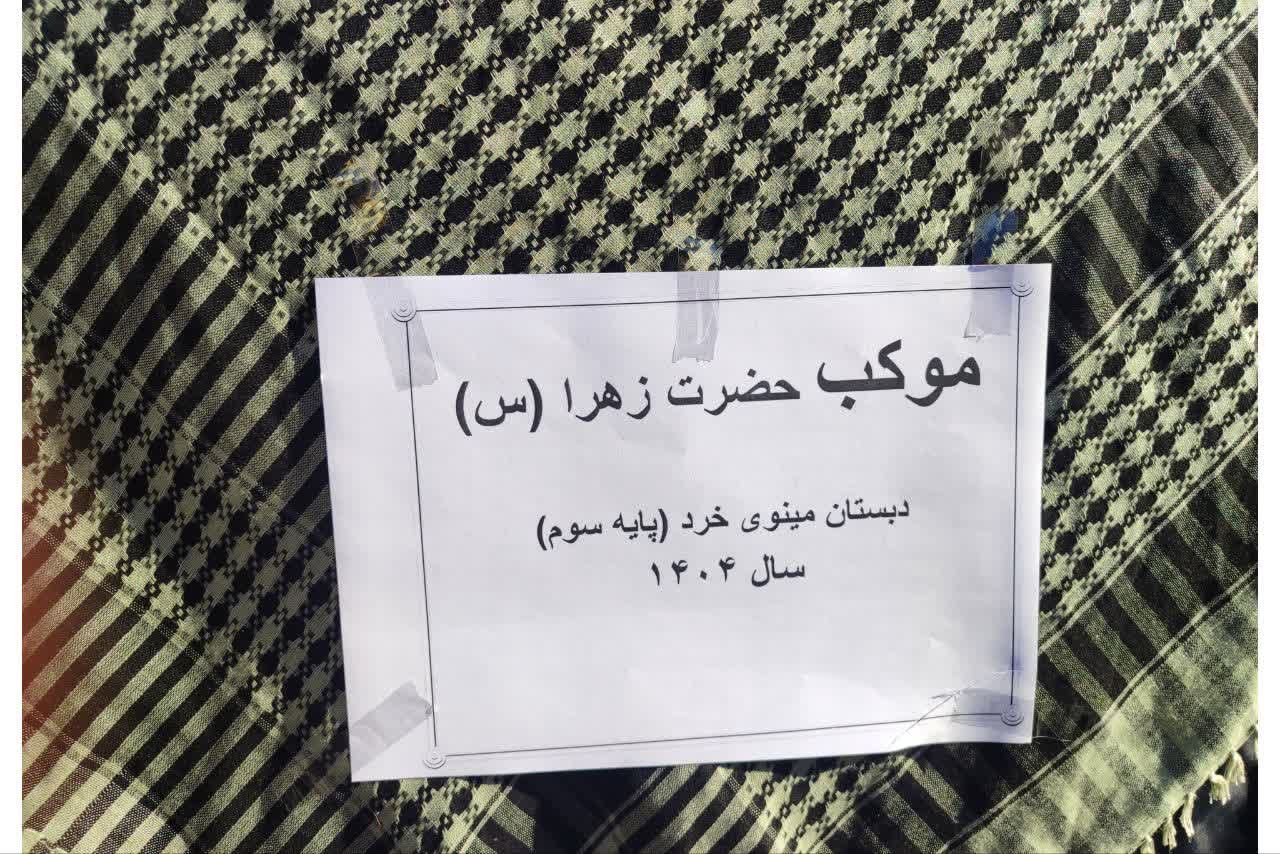 موکب حضرت زهرا (س)
دبستان مینوی خرد (پایه سوم)
سال ۱۴۰۴